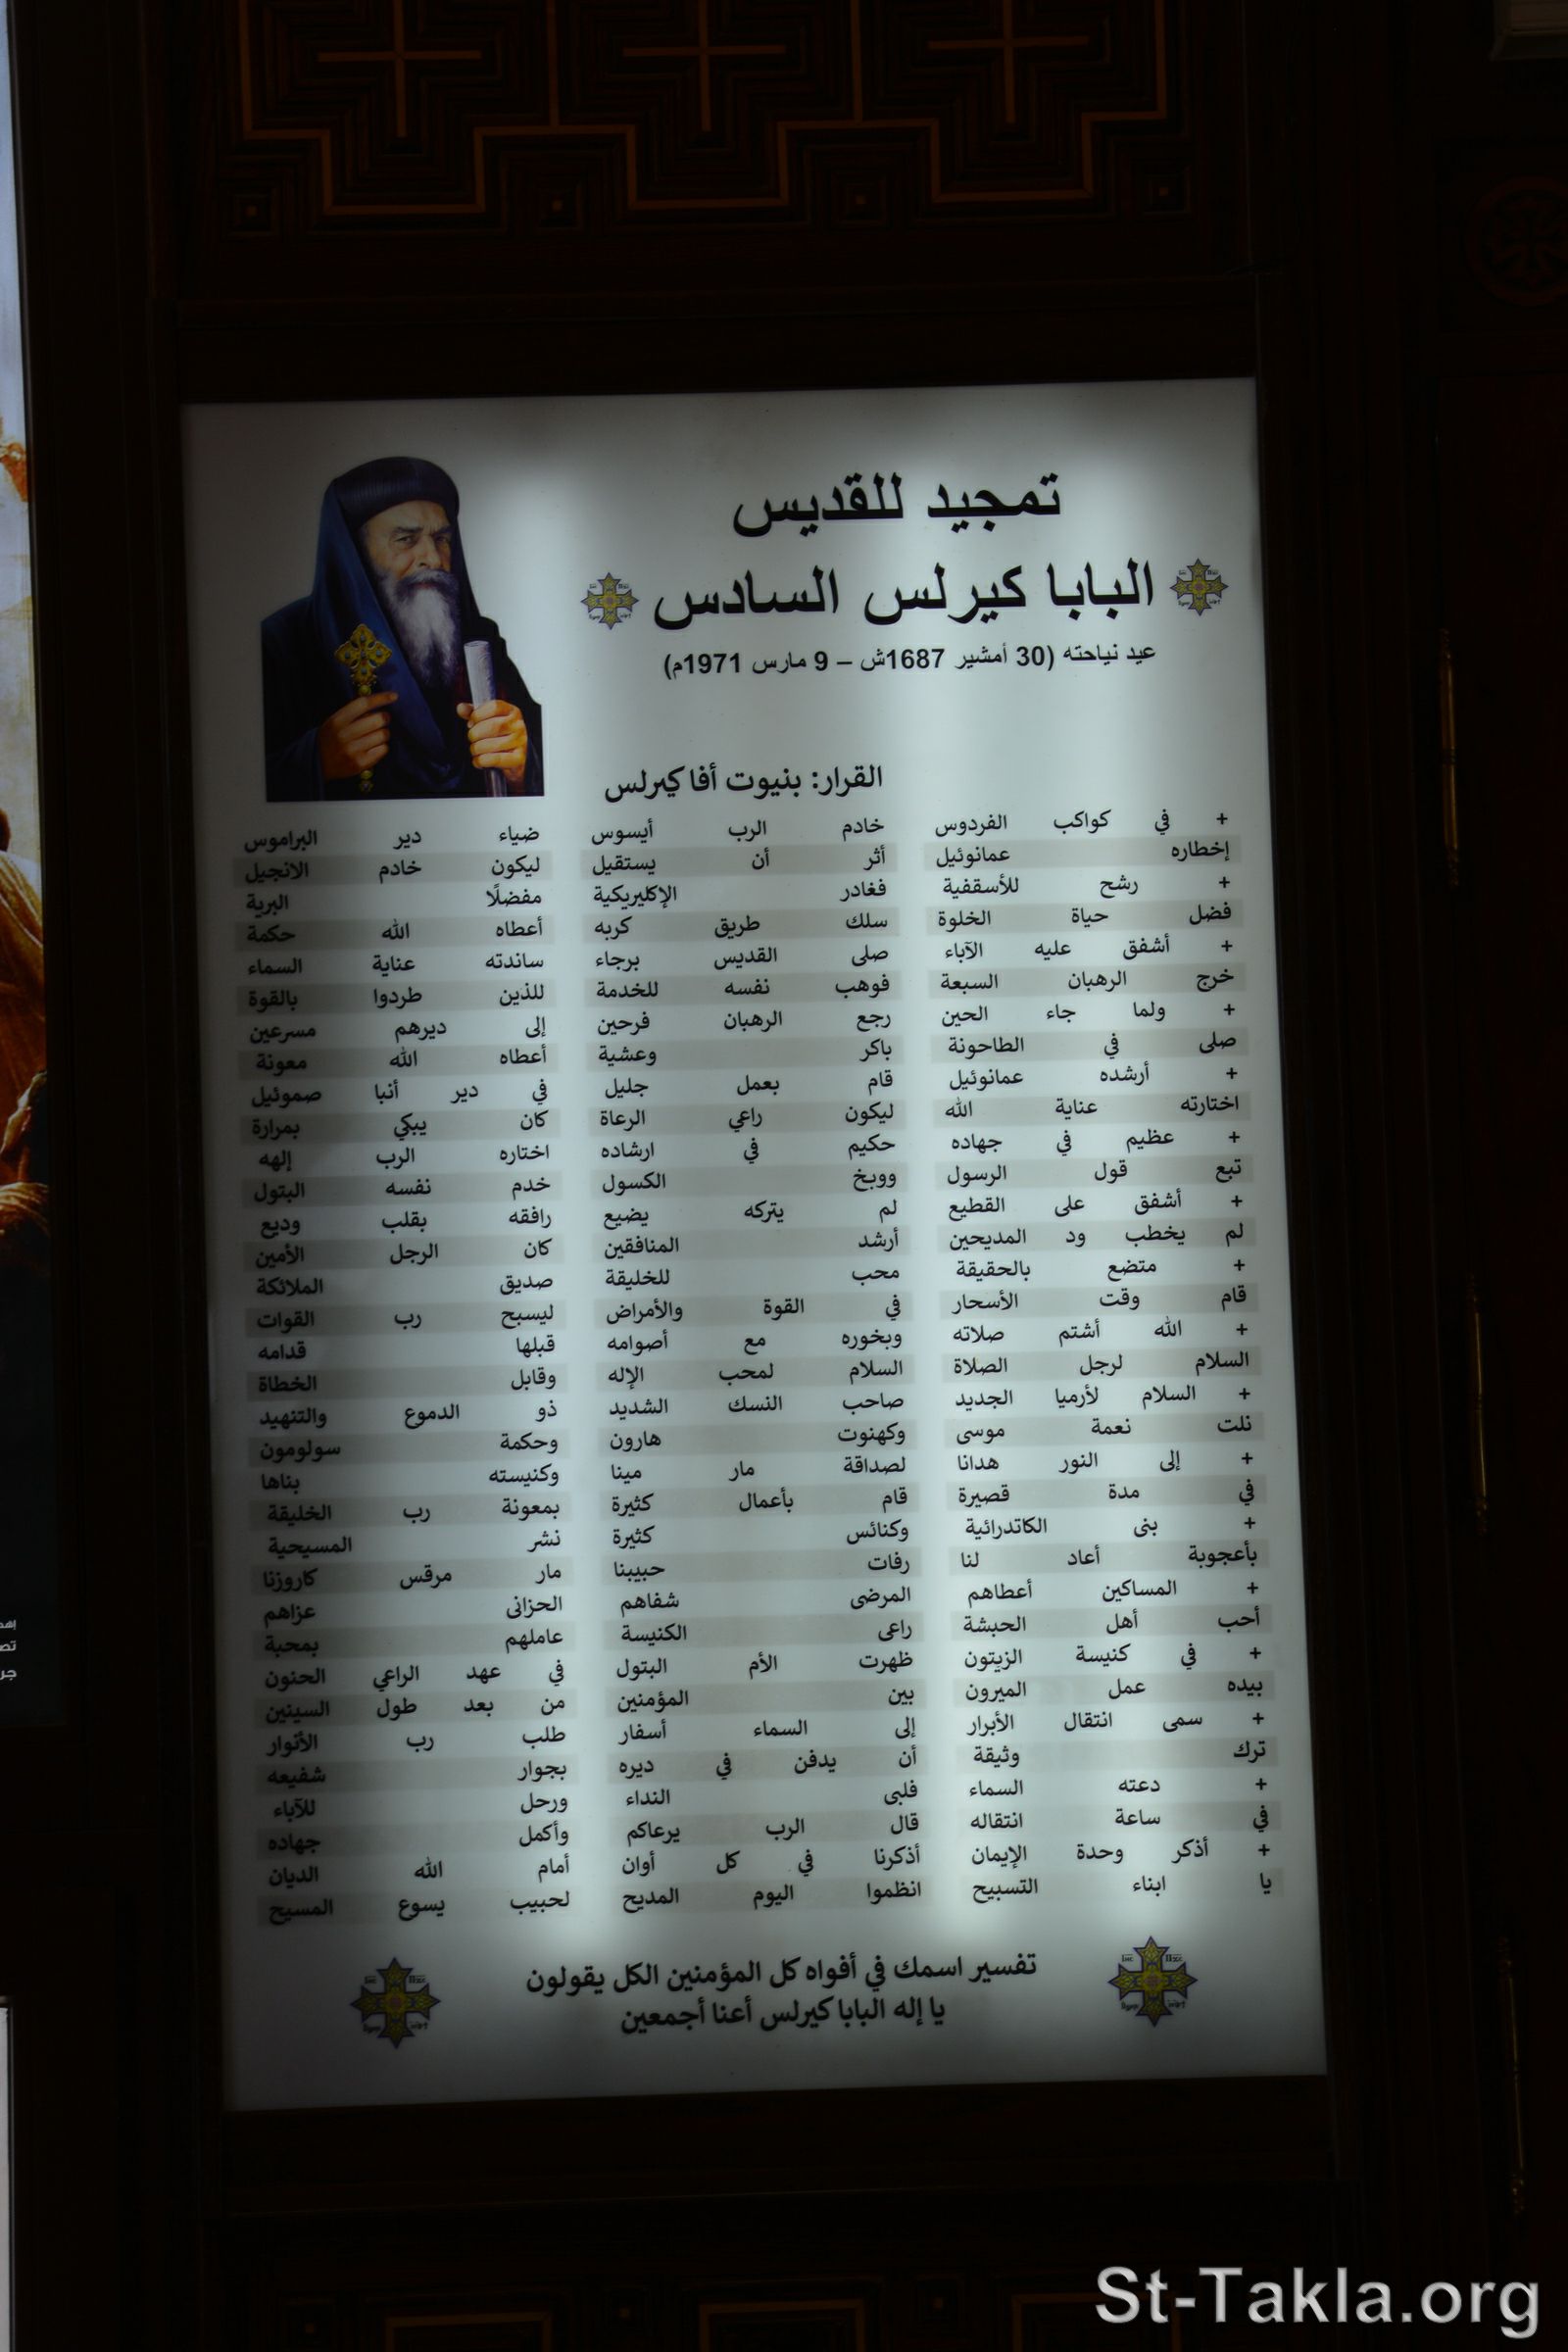 تمجيد للقديس
البابا كيرلس السادس
عيد نياحته (30 أمشير 1687ش – 9 مارس 1971م)
القرار: بنيوت أفا كيرلس
+ في كواكب الفردوس خادم الرب أيسوس ضياء دير البراموس
إخطاره عمانوئيل أثر أن يستقيل ليكون خادم الانجيل
+ رشح للأسقفية فغادر الإكليريكية مفضلًا البرية
فضل حياة الخلوة سلك طريق كربه أعطاه الله حكمة
+ أشفق عليه الآباء صلى القديس برجاء ساندته عناية السماء
خرج الرهبان السبعة فوهب نفسه للخدمة للذين طردوا بالقوة
+ ولما جاء الحين رجع الرهبان فرحين إلى ديرهم مسرعين
صلى في الطاحونة باكر وعشية أعطاه الله معونة
+ أرشده عمانوئيل قام بعمل جليل في دير أنبا صموئيل
اختارته عناية الله ليكون راعي الرعاة كان يبكي بمرارة
+ عظيم في جهاده حكيم في ارشاده اختاره الرب إلهه
تبع قول الرسول ووبخ الكسول خدم نفسه البتول
+ أشفق على القطيع لم يتركه يضيع رافقه بقلب وديع
لم يخطب ود المديحين أرشد المنافقين كان الرجل الأمين
+ متضع بالحقيقة محب للخليقة صديق الملائكة
قام وقت الأسحار في القوة والأمراض ليسبح رب القوات
+ الله أشتم صلاته وبخوره مع أصوامه قبلها قدامه
السلام لرجل الصلاة السلام لمحب الإله وقابل الخطاة
+ السلام لأرميا الجديد صاحب النسك الشديد ذو الدموع والتنهيد
نلت نعمة موسى وكهنوت هارون وحكمة سولومون
+ إلى النور هدانا لصداقة مار مينا وكنيسته بناها
في مدة قصيرة قام بأعمال كثيرة بمعونة رب الخليقة
+ بنى الكاتدرائية وكنائس كثيرة نشر المسيحية
بأعجوبة أعاد لنا رفات حبيبنا مار مرقس كاروزنا
+ المساكين أعطاهم المرضى شفاهم الحزانى عزاهم
أحب أهل الحبشة راعى الكنيسة عاملهم بمحبة
+ في كنيسة الزيتون ظهرت الأم البتول في عهد الراعي الحنون
بيده عمل الميرون بين المؤمنين من بعد طول السينين
+ سمى انتقال الأبرار إلى السماء أسفار طلب رب الأنوار
ترك وثيقة أن يدفن في ديره بجوار شفيعه
+ دعته السماء فلبى النداء ورحل للآباء
في ساعة انتقاله قال الرب يرعاكم وأكمل جهاده
+ أذكر وحدة الإيمان أذكرنا في كل أوان أمام الله الديان
يا ابناء التسبيح انظموا اليوم المديح لحبيب يسوع المسيح
تفسير اسمك في أفواه كل المؤمنين الكل يقولون
يا إله البابا كيرلس أعنا أجمعين
St-Takla.org